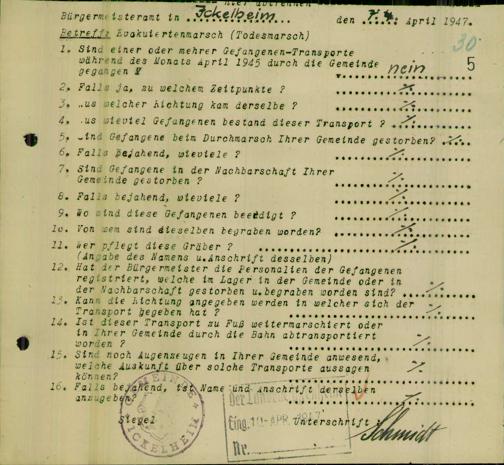 hier abtrennen
Bürgermeisteramt in Ickelheim den 7.4. April 1947.
30
Betreff: Evakuiertenmarsch (Todesmarsch)
5
1. Sind einer oder mehrer Gefangenen-Transporte
während des Monats April 1945 durch die Gemeinde
gegangen ? nein
2. Falls ja, zu welchem Zeitpunkte ? ./.
3. .us welcher Richtung kam derselbe ? ./.
4. .us wieviel Gefangenen bestand dieser Transport ? ./.
5. .ind Gefangene beim Durchmarsch Ihrer Gemeinde gestorben? ./.
6. Falls bejahend, wieviele ? ./.
7. Sind Gefangene in der Nachbarschaft Ihrer
Gemeinde gestorben ? ./.
8. Falls bejahend, wieviele ? ./.
9. Wo sind diese Gefangenen beerdigt ? ./.
10. Von wem sind dieselben begraben worden? ./.
11. Wer pflegt diese Gräber ? ./.
(Angabe des Namens u.Anschrift desselben)
12. Hat der Bürgermeister die Personalien der Gefangenen
registriert, welche im Lager in der Gemeinde oder in
der Nachbarschaft gestorben u.begraben worden sind? ./.
13. Kann die Richtung angegeben werden in welcher sich der
Transport begeben hat ? ./.
14. Ist dieser Transport zu Fuß weitermarschiert oder
in Ihrer Gemeinde durch die Bahn abtransportiert
worden ? ./.
15. Sind noch Augenzeugen in Ihrer Gemeinde anwesend,
welche Auskunft über solche Transporte aussagen
können? ./.
16. Falls bejahend, ist Name und Anschrift derselben
anzugeben? ./.
GEMEINDE ICKELHEIM
Der
Eing. 10. APR. 1947
Nr.
Siegel Unterschrift:
Schmidt